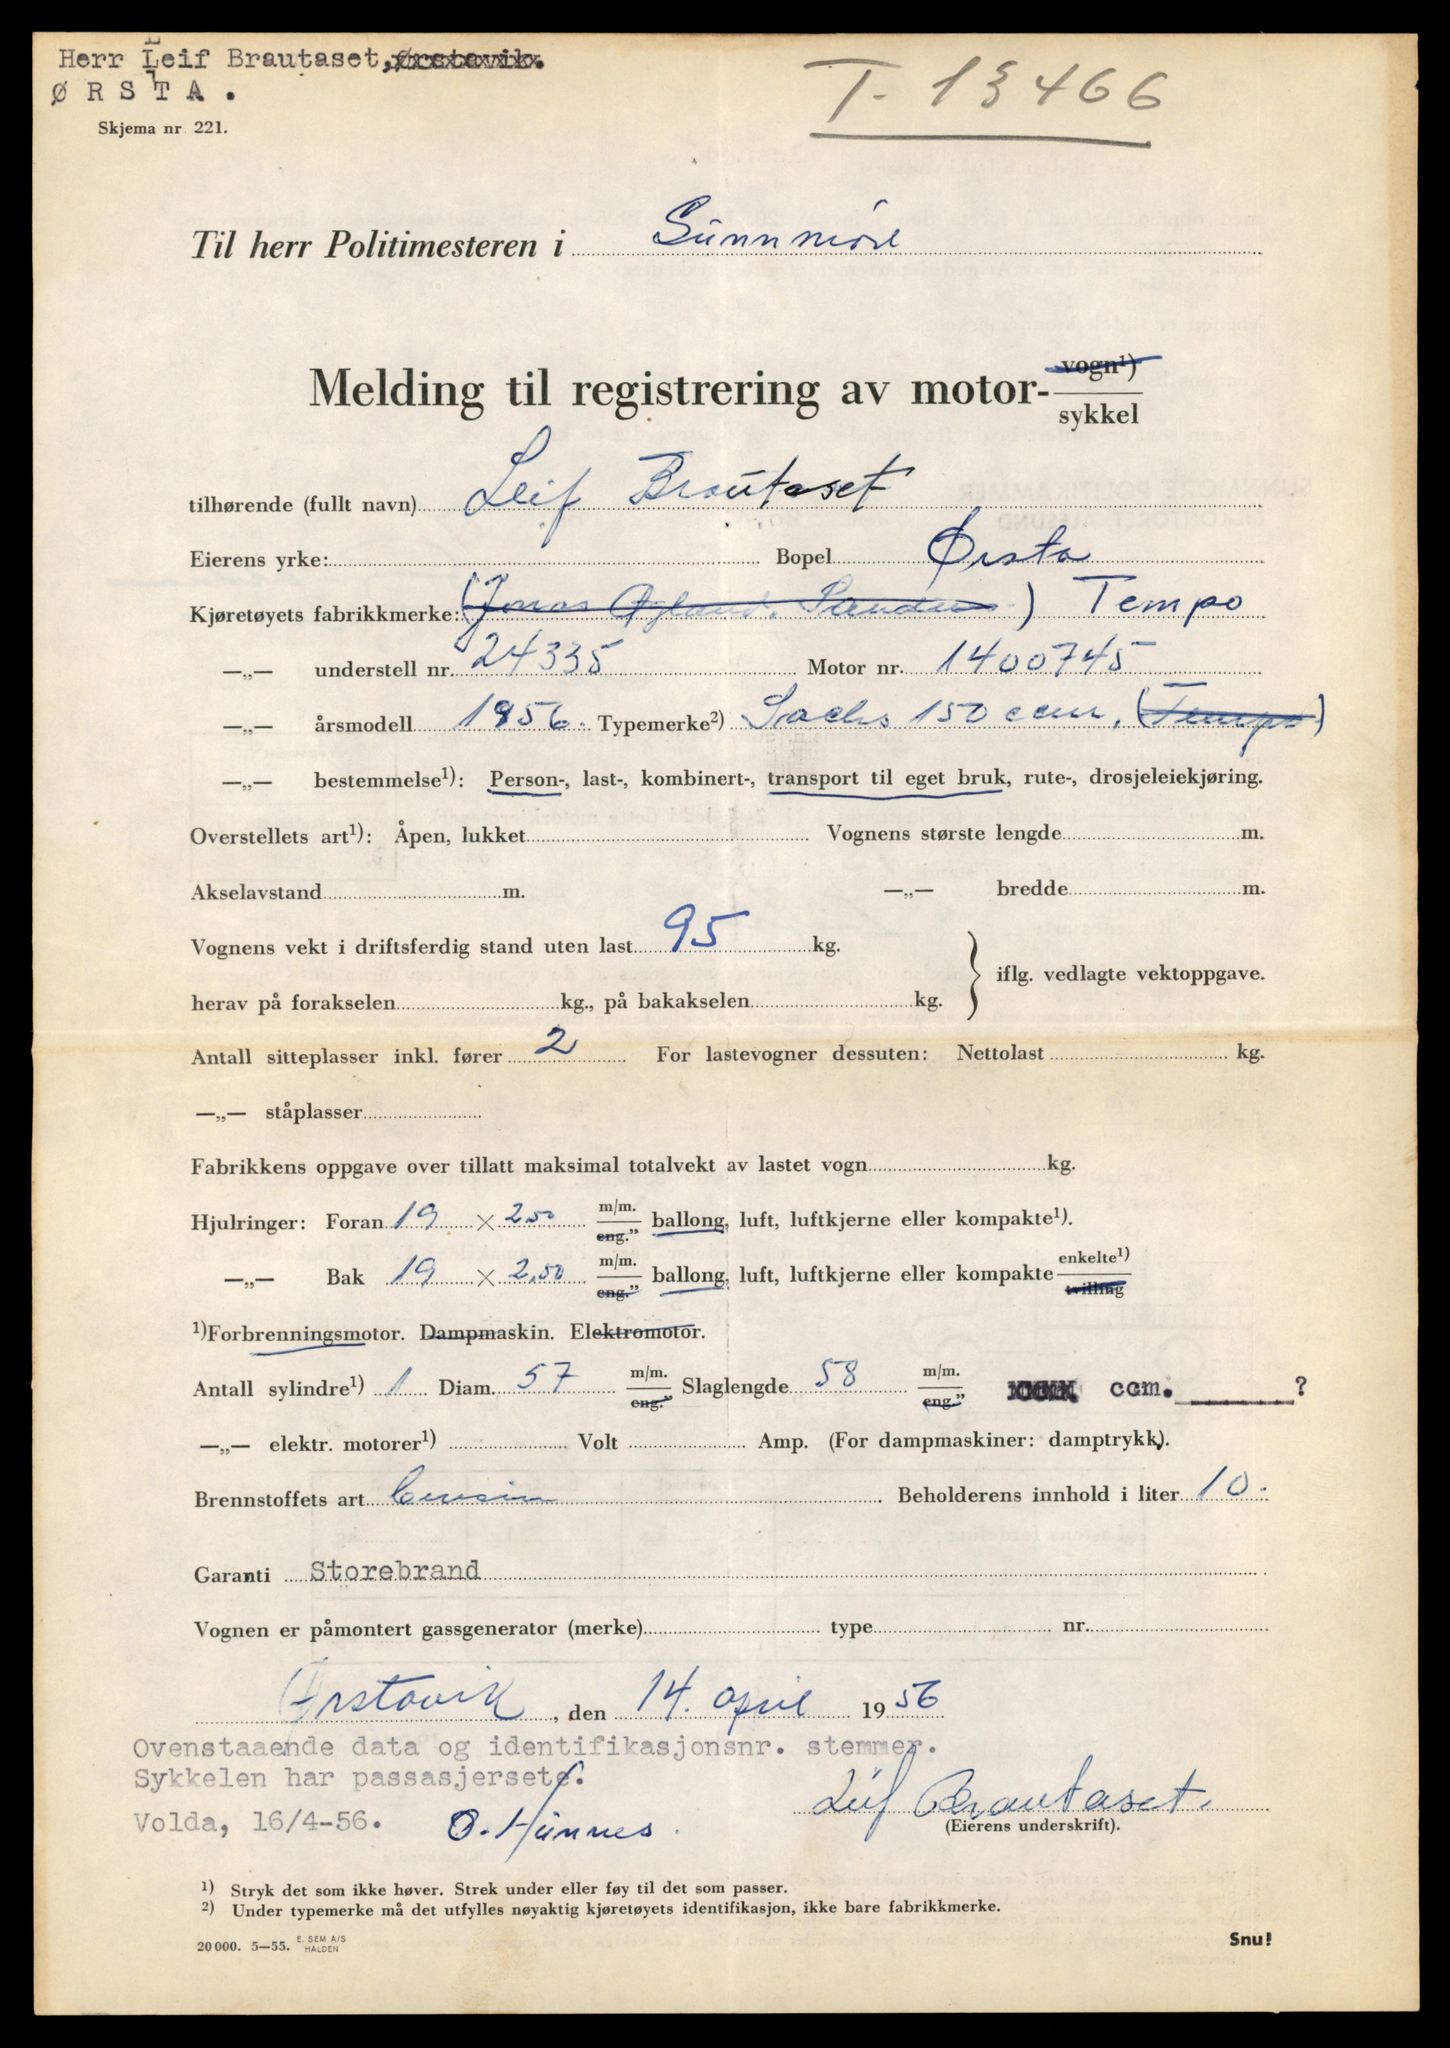 Herr Leif Brautaset, Ørstavik.
ØRSTA.
Skjema nr. 221.
T- 13466
Til herr Politimesteren i Sunnmöre
Melding til registrering av motor- vogn¹) sykkel
tilhørende (fullt navn) Leif Brautaset
Eierens yrke: Bopel Ørsta
Kjøretøyets fabrikkmerke: (Jonas Øglænd, Sandnes.) Tempo
—„— understell nr. 24335 Motor nr. 1400745
—„— årsmodell 1956. Typemerke²) Sachs 150 ccm. (Tempo)
—„— bestemmelse¹): Person-, last-, kombinert-, transport til eget bruk, rute-, drosjeleiekjøring.
Overstellets art¹): Åpen, lukket Vognens største lengde m.
Akselavstand m. —„— bredde m.
Vognens vekt i driftsferdig stand uten last 95 kg.
iflg. vedlagte vektoppgave.
herav på forakselen kg., på bakakselen kg.
Antall sitteplasser inkl. fører 2 For lastevogner dessuten: Nettolast kg.
—„— ståplasser
Fabrikkens oppgave over tillatt maksimal totalvekt av lastet vogn kg.
Hjulringer: Foran 19 × 2.50 m/m. eng.” ballong, luft, luftkjerne eller kompakte¹).
—„— Bak 19 × 2.50 m/m. eng.” ballong, luft, luftkjerne eller kompakte enkelte¹) tvilling
¹)Forbrenningsmotor. Dampmaskin. Elektromotor.
Antall sylindre¹) 1 Diam. 57 m/m. eng.” Slaglengde 58 m/m. eng.” ccm. ?
—„— elektr. motorer¹) Volt Amp. (For dampmaskiner: damptrykk).
Brennstoffets art bensin Beholderens innhold i liter 10.
Garanti Storebrand
Vognen er påmontert gassgenerator (merke) type nr.
Ørstavik, den 14. april 1956
Ovenstaaende data og identifikasjonsnr. stemmer.
Sykkelen har passasjersete.
Volda, 16/4-56. O. Hunnes.
Leif Brautaset.
(Eierens underskrift).
¹) Stryk det som ikke høver. Strek under eller føy til det som passer.
²) Under typemerke må det utfylles nøyaktig kjøretøyets identifikasjon, ikke bare fabrikkmerke.
20 000. 5—55. E. SEM A/S HALDEN
Snu!